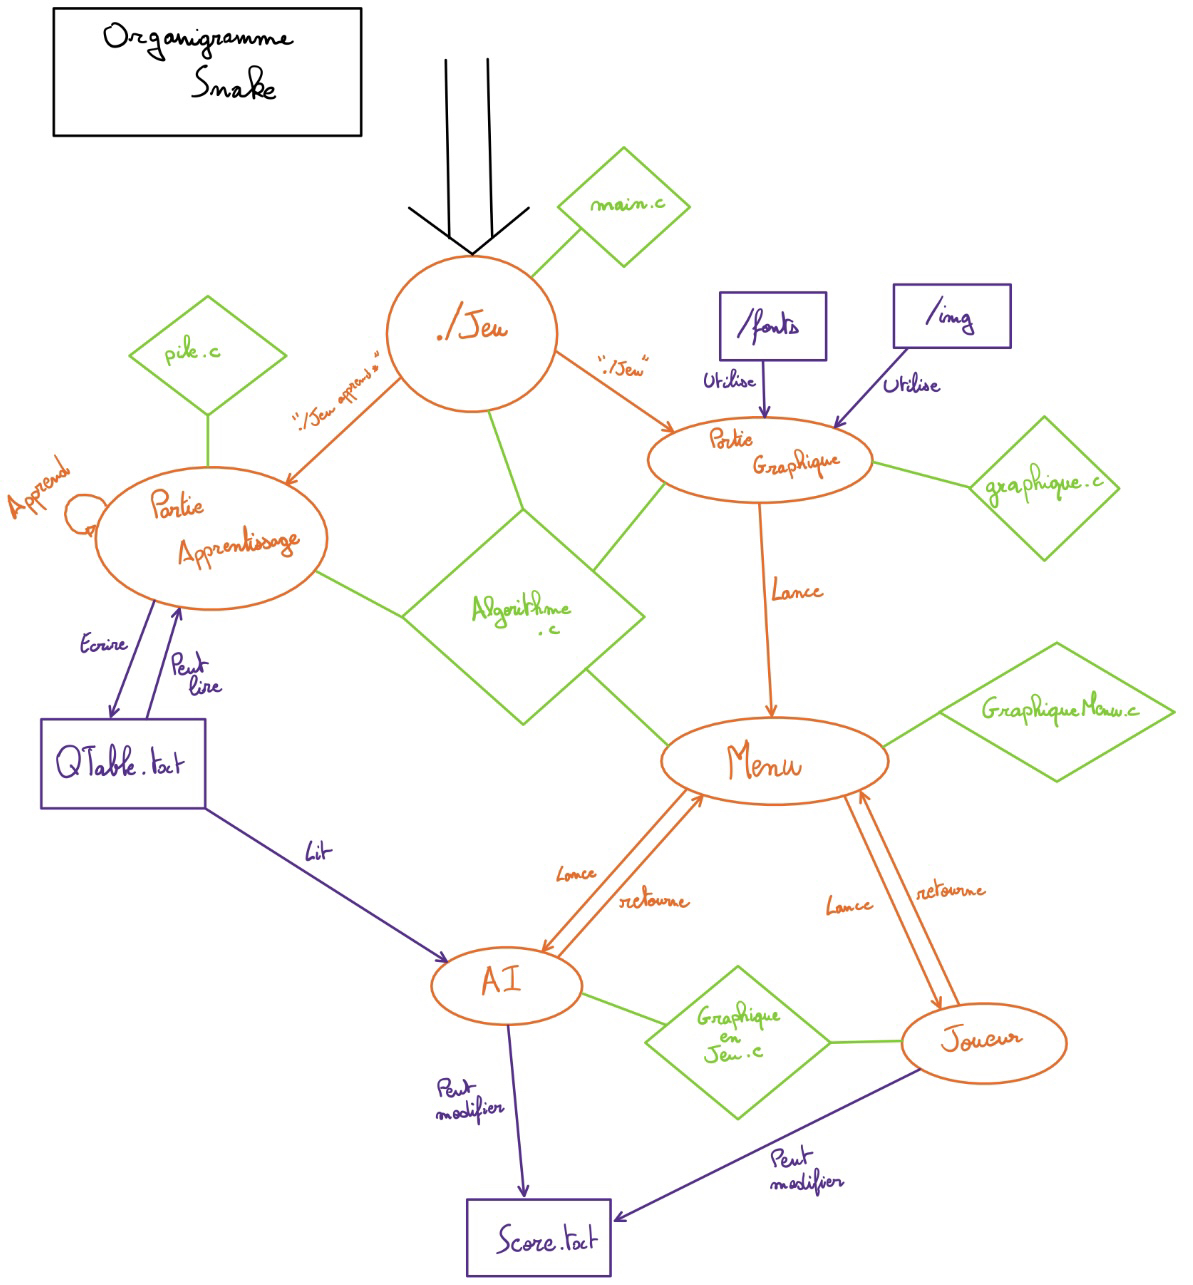 Organigramme
Snake
main.c
./Jeu
/fonts
/img
pile.c
"./Jeu apprend"
"./Jeu"
Utilise
Utilise
Partie
Graphique
graphique.c
Apprend
Partie
Apprentissage
Algorithme
.c
Lance
Ecrire
Peut
lire
GraphiqueMenu.c
QTable.txt
Menu
Lit
Lance
retourne
Lance
retourne
AI
Graphique
en
Jeu.c
Joueur
Peut
modifier
Peut
modifier
Score.txt